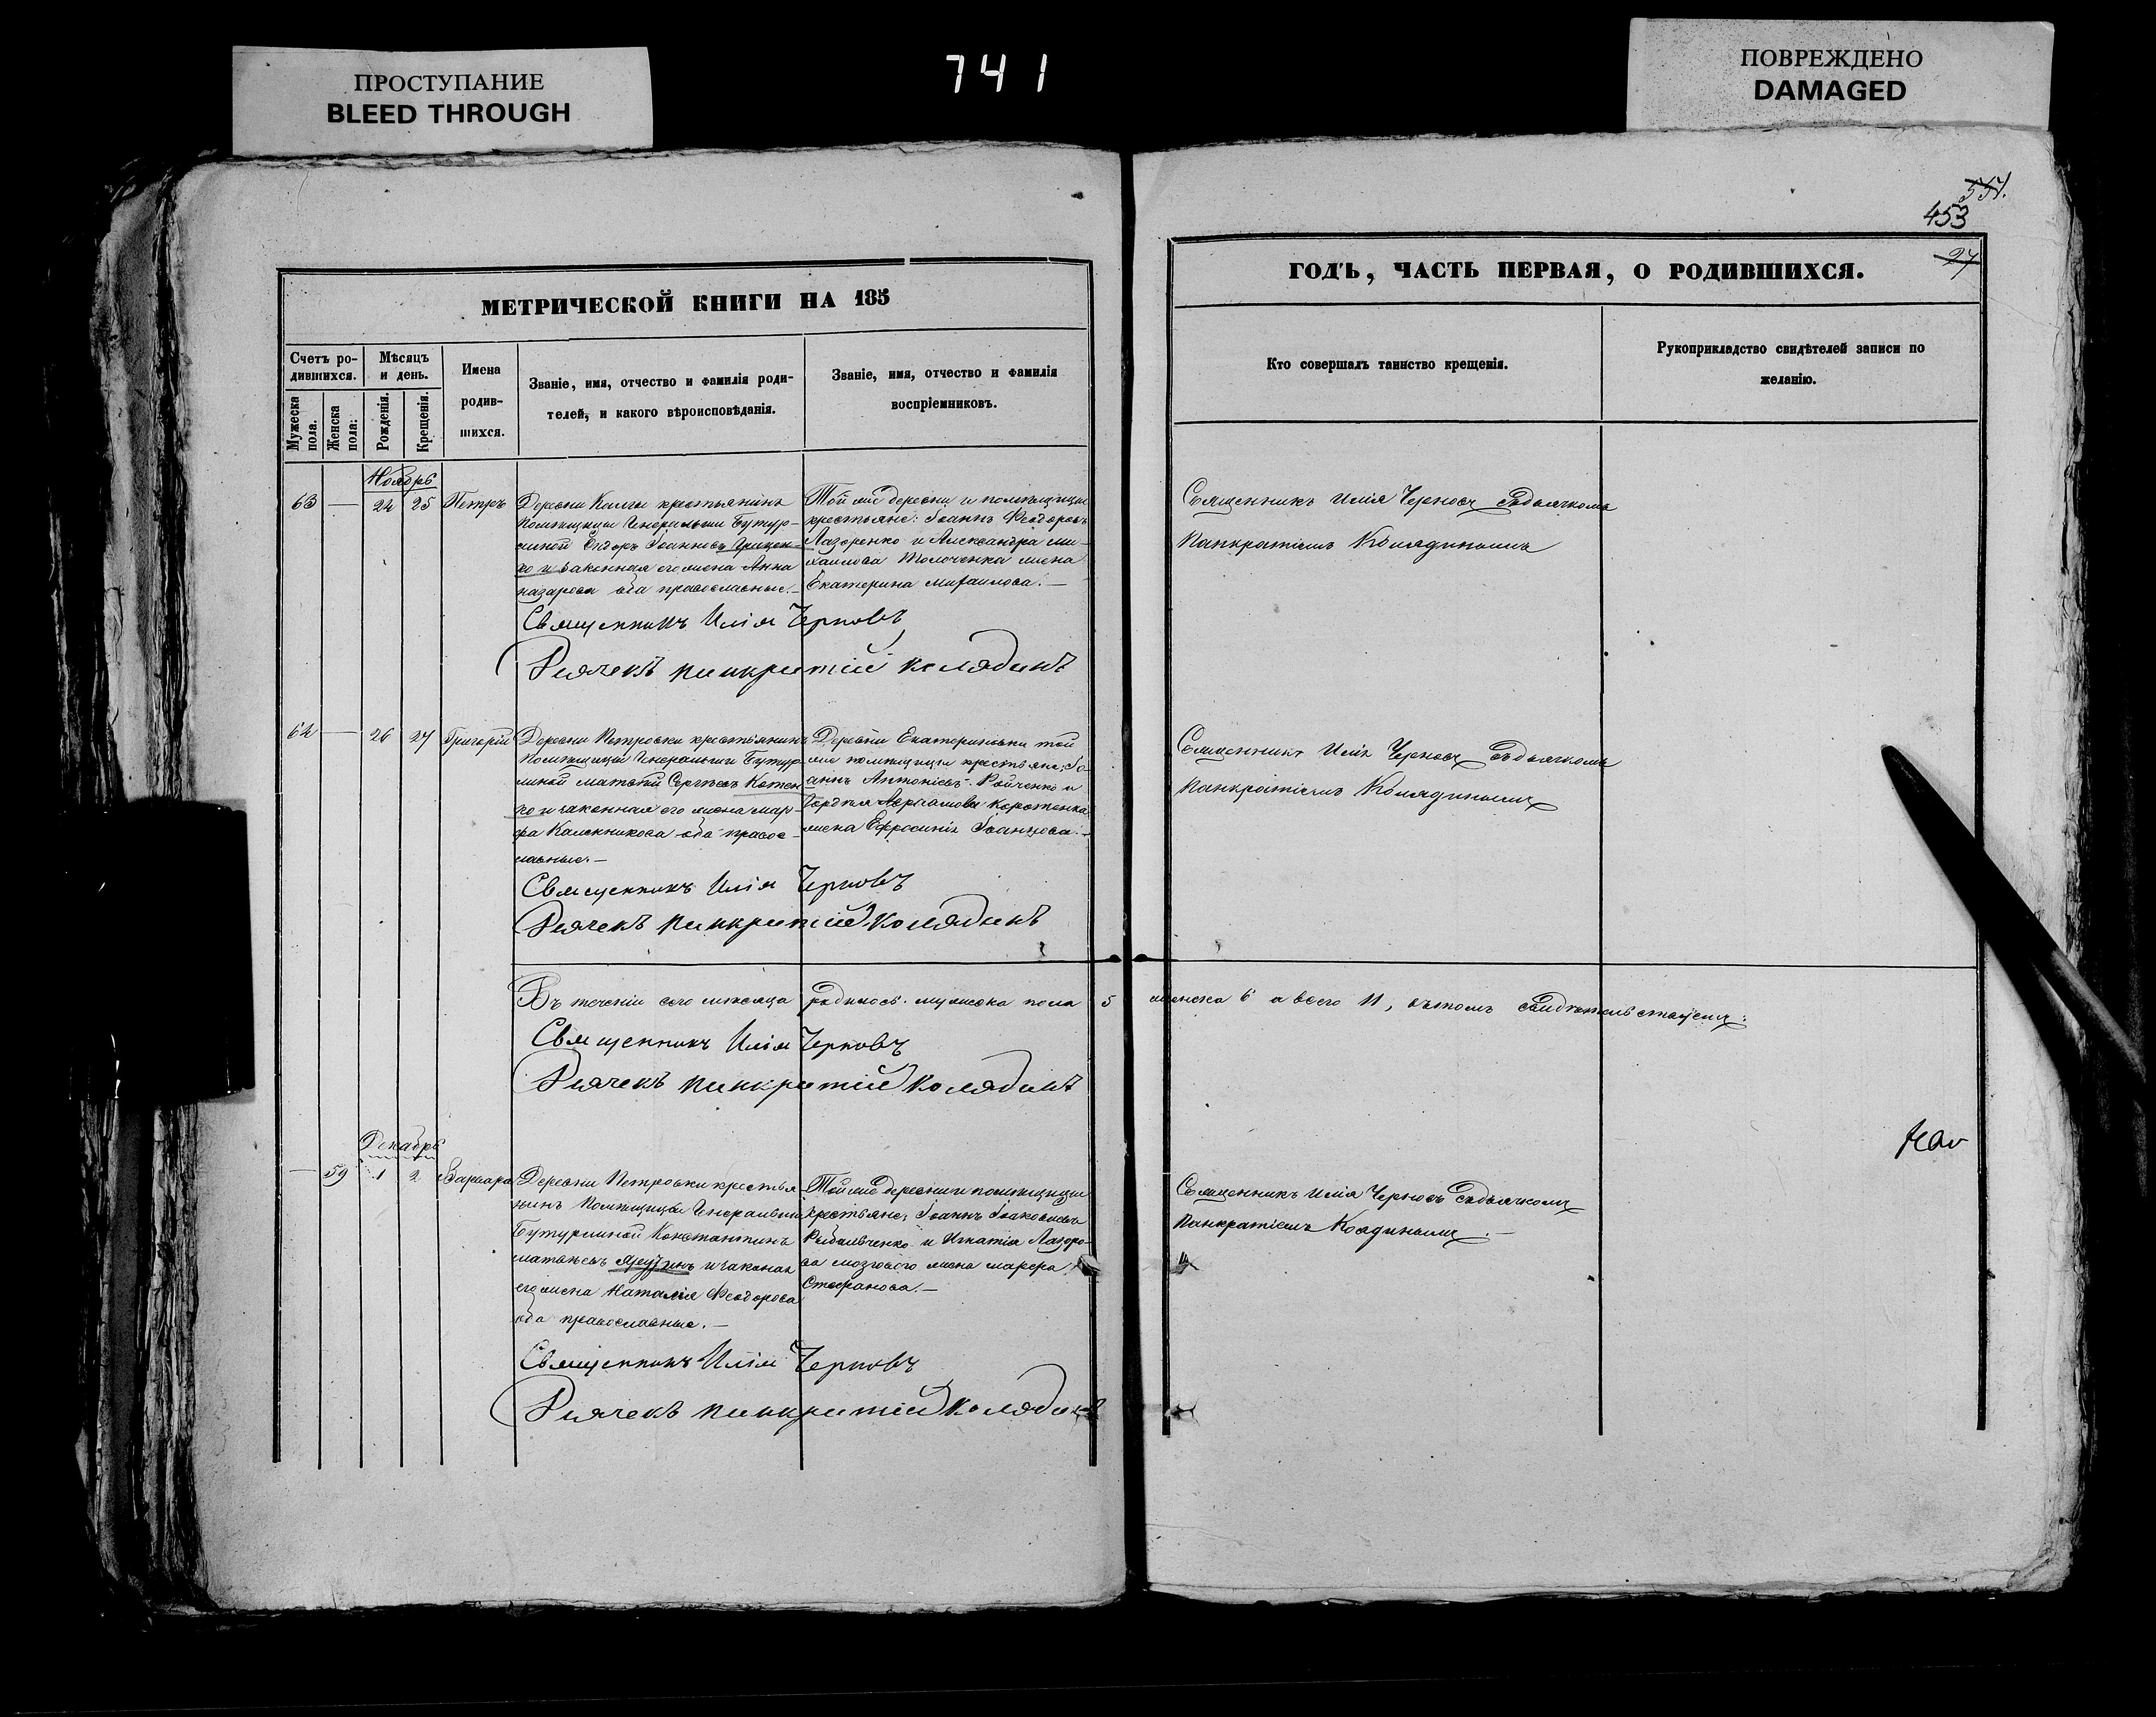 ПРОСТУПАНИЕ
BLEED THROUGH
741
ПОВРЕЖДЕНО
DAMAGED
453
27
МЕТРИЧЕСКОЙ КНИГИ НА 185
ГОДЪ, ЧАСТЬ ПЕРВАЯ, О РОДИВШИХСЯ.
Счетъ ро-
дившихся.
Мужеска
пола.
Женска
пола.
Мѣсяцъ
и день.
Рожденія.
Крещенія.
Имена
родив-
шихся.
Званіе, имя, отчество и фамилія роди-
телей, и какого вѣроисповѣданія.
Званіе, имя, отчество и фамилія
воспріемниковъ.
Кто совершалъ таинство крещенія.
Рукоприкладство свидѣтелей записи по
желанію.
Ноябрь
63 — 24 25 Петръ
Деревни крестьянинъ
Помѣщицы Генеральши Бутур-
линой Ѳедоръ Іоанновъ Грицен-
ко и законная его жена Анна
Назарова оба православные.—
Той же деревни и помѣщицы
крестьяне: Іоаннъ Феодоровъ
Лазоренко и Александра Ми-
хаилова жена
Екатерина Михаилова.—
Священникъ Илія Черновъ съ дьячкомъ
Панкратіемъ Колядинымъ
Священникъ Илія Черновъ
Дьячекъ Панкратій Колядинъ
64 — 26 27 Григорій
Деревни Петровки крестьянинъ
Помѣщицы Генеральши Бутур-
линой Матвѣй Сергѣевъ Котен-
ко и законная его жена Мар-
фа Калинникова оба правос-
лавные.—
Деревни Екатериновки той
же помѣщицы крестьяне: Іо-
аннъ Антоніевъ и
Авраамова
жена Ефросинія Іоаннова.—
Священникъ Илія Черновъ съ дьячкомъ
Панкратіемъ Колядинымъ
Священникъ Илія Черновъ
Дьячекъ Панкратій Колядинъ
Въ теченіи сего мѣсяца родилось: мужеска пола 5 женска 6 а всего 11, въ томъ свидѣтельствуемъ:
Священникъ Илія Черновъ
Дьячекъ Панкратій Колядинъ
Декабрь
— 59 1 2 Варвара
Деревни Петровки крестья-
нинъ Помѣщицы Генеральши
Бутурлиной Константинъ
Матвѣевъ и законная
его жена Наталія Феодорова
оба православные.—
Той же деревни и помѣщицы
крестьяне: Іоаннъ Іаковлевъ
Рыбальченко и Игнатія Лазоре-
ва жена Марфа
Стефанова.—
Священникъ Илія Черновъ съ дьячкомъ
Панкратіемъ Коядинымъ.—
Священникъ Илія Черновъ
Дьячекъ Панкратій Колядинъ